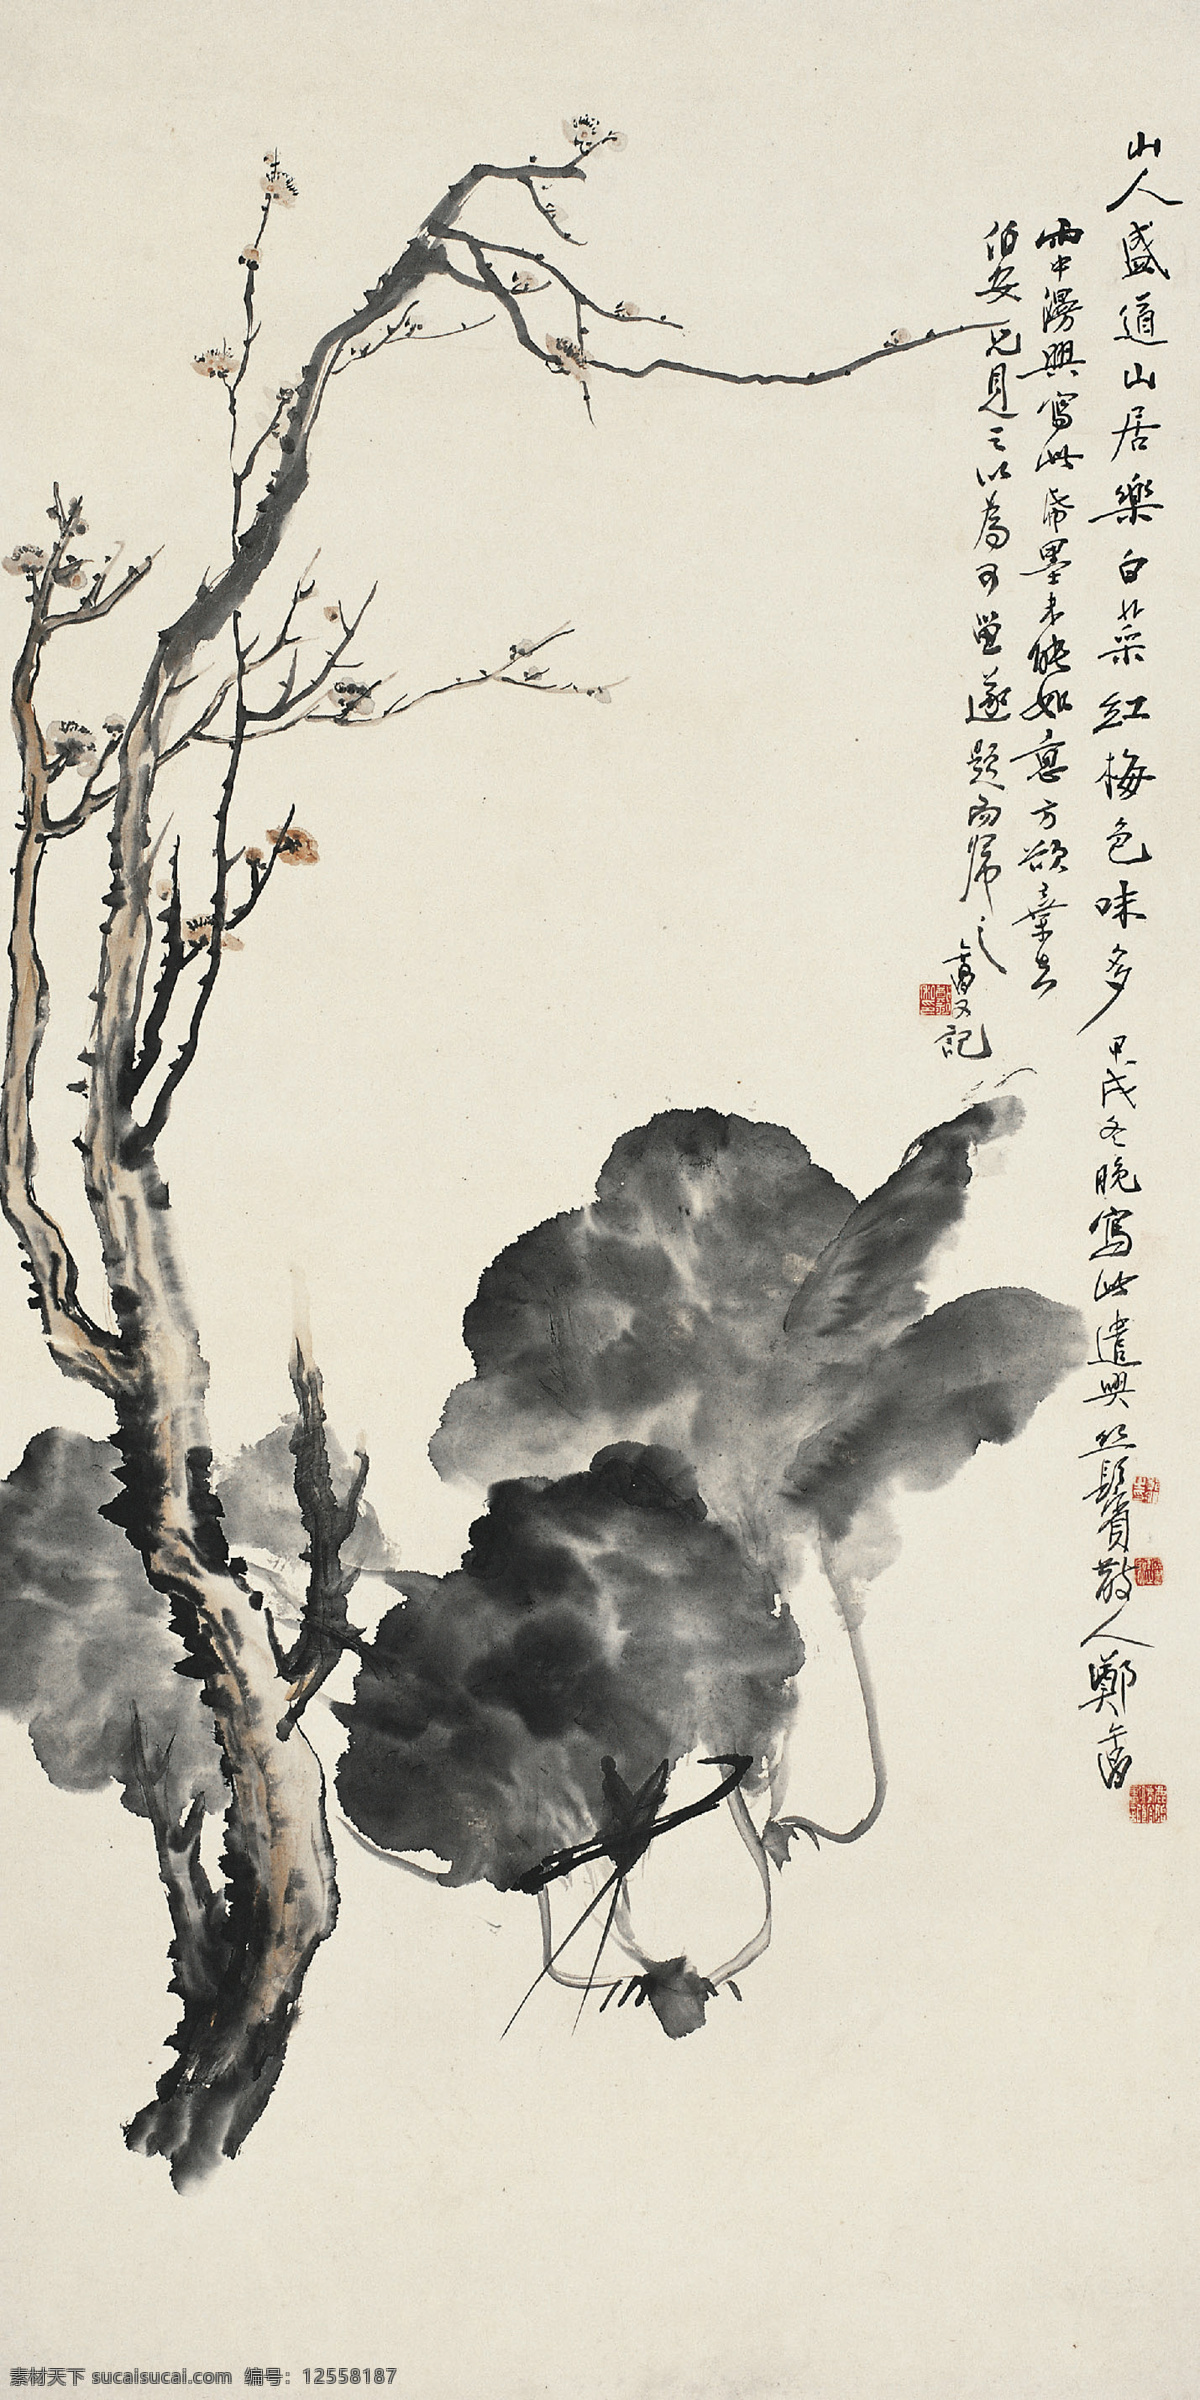 山人盛道山居樂白菜紅梅色味多甲戌冬晚寫此遣興絲鬢散人鄭
雨中漫興寫此帋墨未能如意方欲棄去
伯安兄見之以為可留遂題而歸之
又記
素材天下 sucaisucai.com 编号：12558187